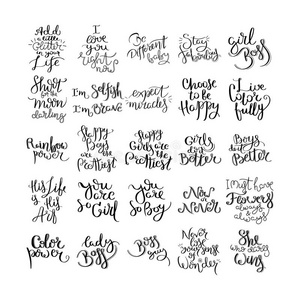 Add a
little
Glitter
in your
Life
I
love
you
right
now
Be
Different
baby
Stay
girl
Boss
Shoot
for the
moon
darling
I'm Selfish
I'm Brave
expect
miracles
Choose
to be
Happy
I live
Color
fully
Rainbow
power
Happy
Boys
are the
Prettiest
Happy
Girls are
the
Prettiest
Girls
do it
Better
Boys
do it
Better
His Life
is His
Art
you
are
so Girl
you
are
so Boy
Now
or
Never
I must have
Flowers
always &
always
Color
power
lady
Boss
Boss
guy
Never
lose your
sense of
Wonder
She
who dares
wins